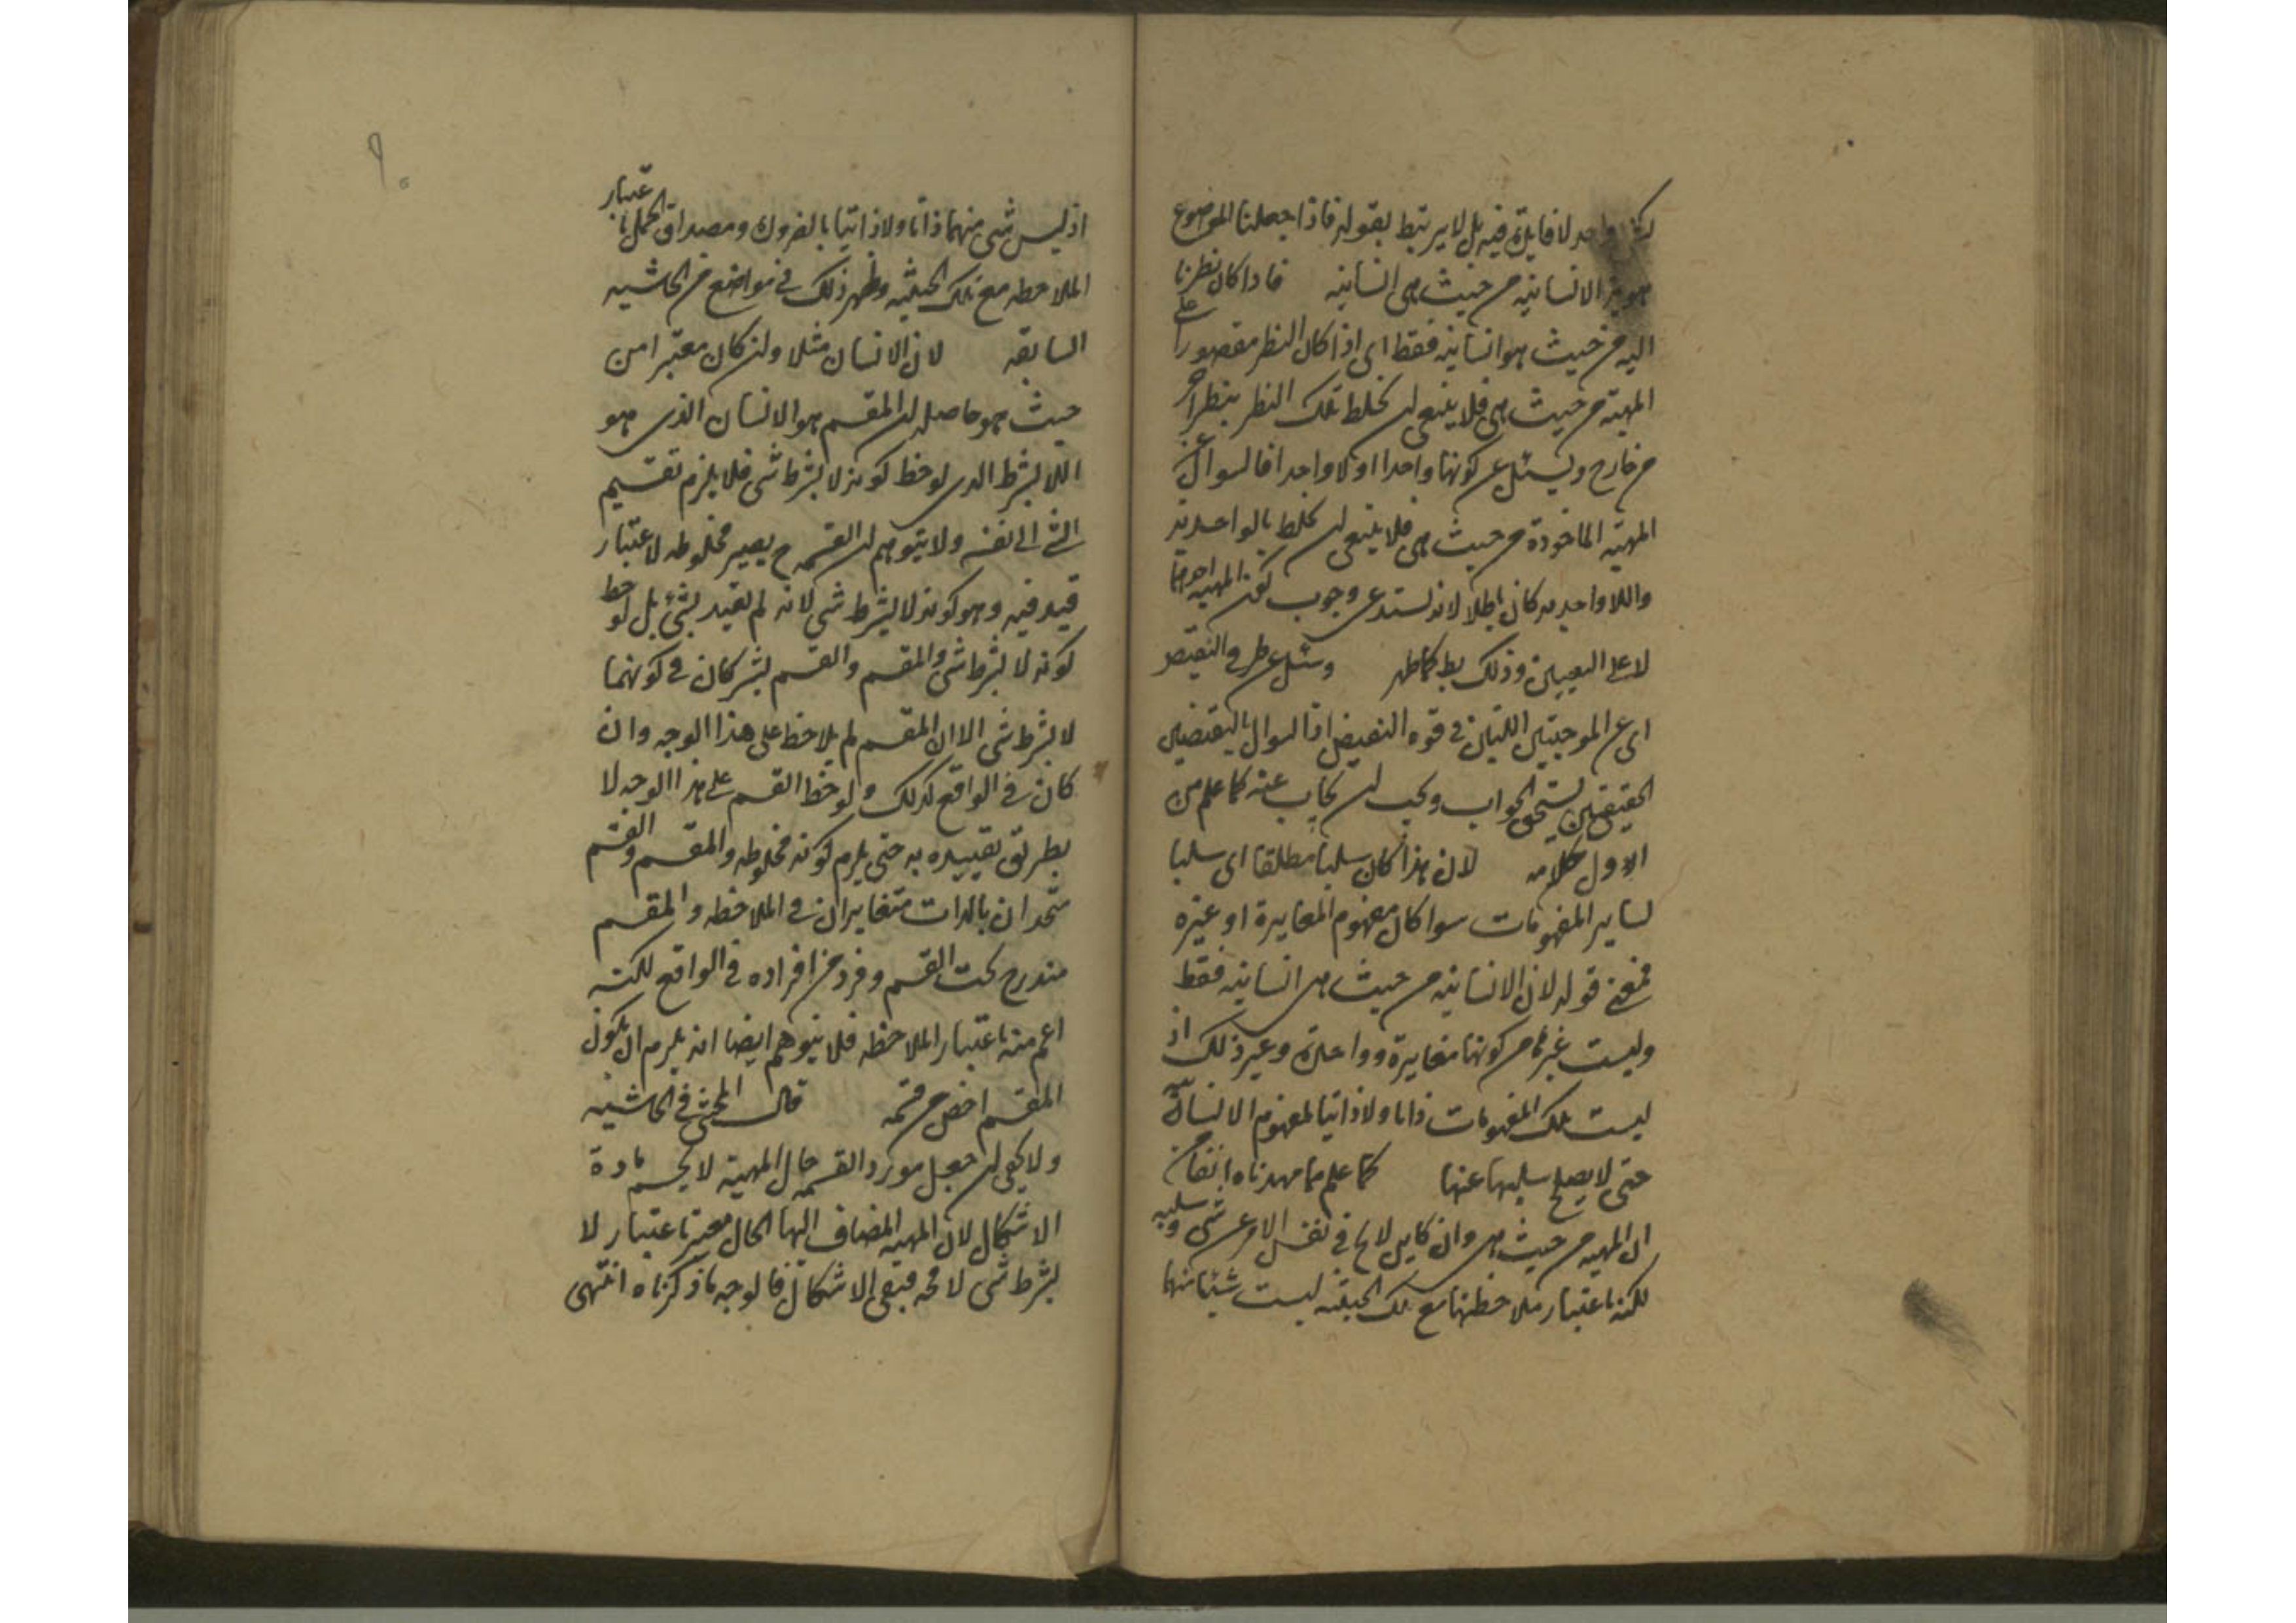 واحد لا فايدة فيه بل لا يرتبط بقوله فاذا جعلنا الموضوع
هوية الانسانية من حيث هى انسانية فاذا كان نظرنا
اليه من حيث هو انسانية فقط اى اذا كان النظر مقصورا على
المهية من حيث هى فلا ينبغى ان يخلط تلك النظر بنظر اخر
من خارج ويسئل عن كونها واحدا او لا واحدا فالسوال عن
المهية الماخوذة من حيث هى فلا ينبغى ان يخلط بالواحدية
واللاواحدية كان باطلا لانه يستدعى وجوب كون المهية احدهما
لا على التعيين وذلك بط كما ظهر وسئل عن طرفى النقيض
اى عن الموجبتين اللتين فى قوة النقيض اذ السوال بالنقيضين
الحقيقيين يستحق الجواب ويجب ان يجاب عنه كما علم من
الاول كلامه لان هذا كان سلبا مطلقا اى سلبا
لساير المفهومات سوا كان مفهوم المغايرة او غيره
فمعنى قوله لان الانسانية من حيث هى انسانية فقط
وليست غيرها من كونها مغايرة وواحدة وغير ذلك اذ
ليست تلك المفهومات ذاتا ولا ذاتيا لمفهوم الانسانية
حتى لا يصلح سلبها عنها كما علم مما مهدناه انفا من
ان المهية من حيث هى وان كان لا يخ فى نفس الامر عن شى وسلبه
لكنه باعتبار ملاحظتها مع تلك الحيثية ليست شيئا منها
٩٠
اذ ليس شى منهما ذاتا ولا ذاتيا بالفروك ومصداق الحمل باعتبار
الملاحظه مع تلك الحيثيه وظهر ذلك فى مواضع من الحاشيه
السابقه لان الانسان مثلا وان كان معتبرا من
حيث هو حاصله ان المقسم هو الانسان الذى هو
اللابشرط الذى لوحظ كونه لا بشرط شى فلا يلزم تقسيم
الشى الى نفسه ولا يتوهم ان القسم ح يصير مخلوطه لاعتبار
قيد فيه وهو كونه لا بشرط شى لانه لم يقيد بشئ بل لوحظ
كونه لا بشرط شى والمقسم والقسم يشتركان فى كونهما
لا بشرط شى الا ان المقسم لم يلاحظ على هذا الوجه وان
كان فى الواقع كذلك ولوحظ القسم على هذا الوجه لا
بطريق تقييده به حتى يلزم كونه مخلوطه والمقسم والقسم
متحدان بالذات متغايران فى الملاحظه والمقسم
مندرج تحت القسم وفرد من افراده فى الواقع لكنه
اعم منه باعتبار الملاحظه فلا يتوهم ايضا انه يلزم ان يكون
المقسم اخص من قسمه قال المحشى فى الحاشيه
ولا يكفى ان جعل مورد القسمه حال المهية لا يحسم مادة
الاشكال لان المهية المضاف اليها الحال معتبر باعتبار لا
بشرط شى لا محه فيبقى الاشكال فالوجه ما ذكرناه انتهى